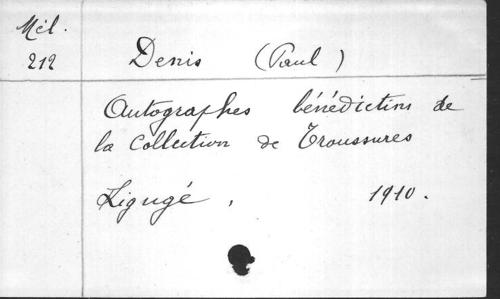 Mél.
212
Denis (Paul)
Autographes bénédictins de
la Collection de Troussures
Ligugé, 1910.